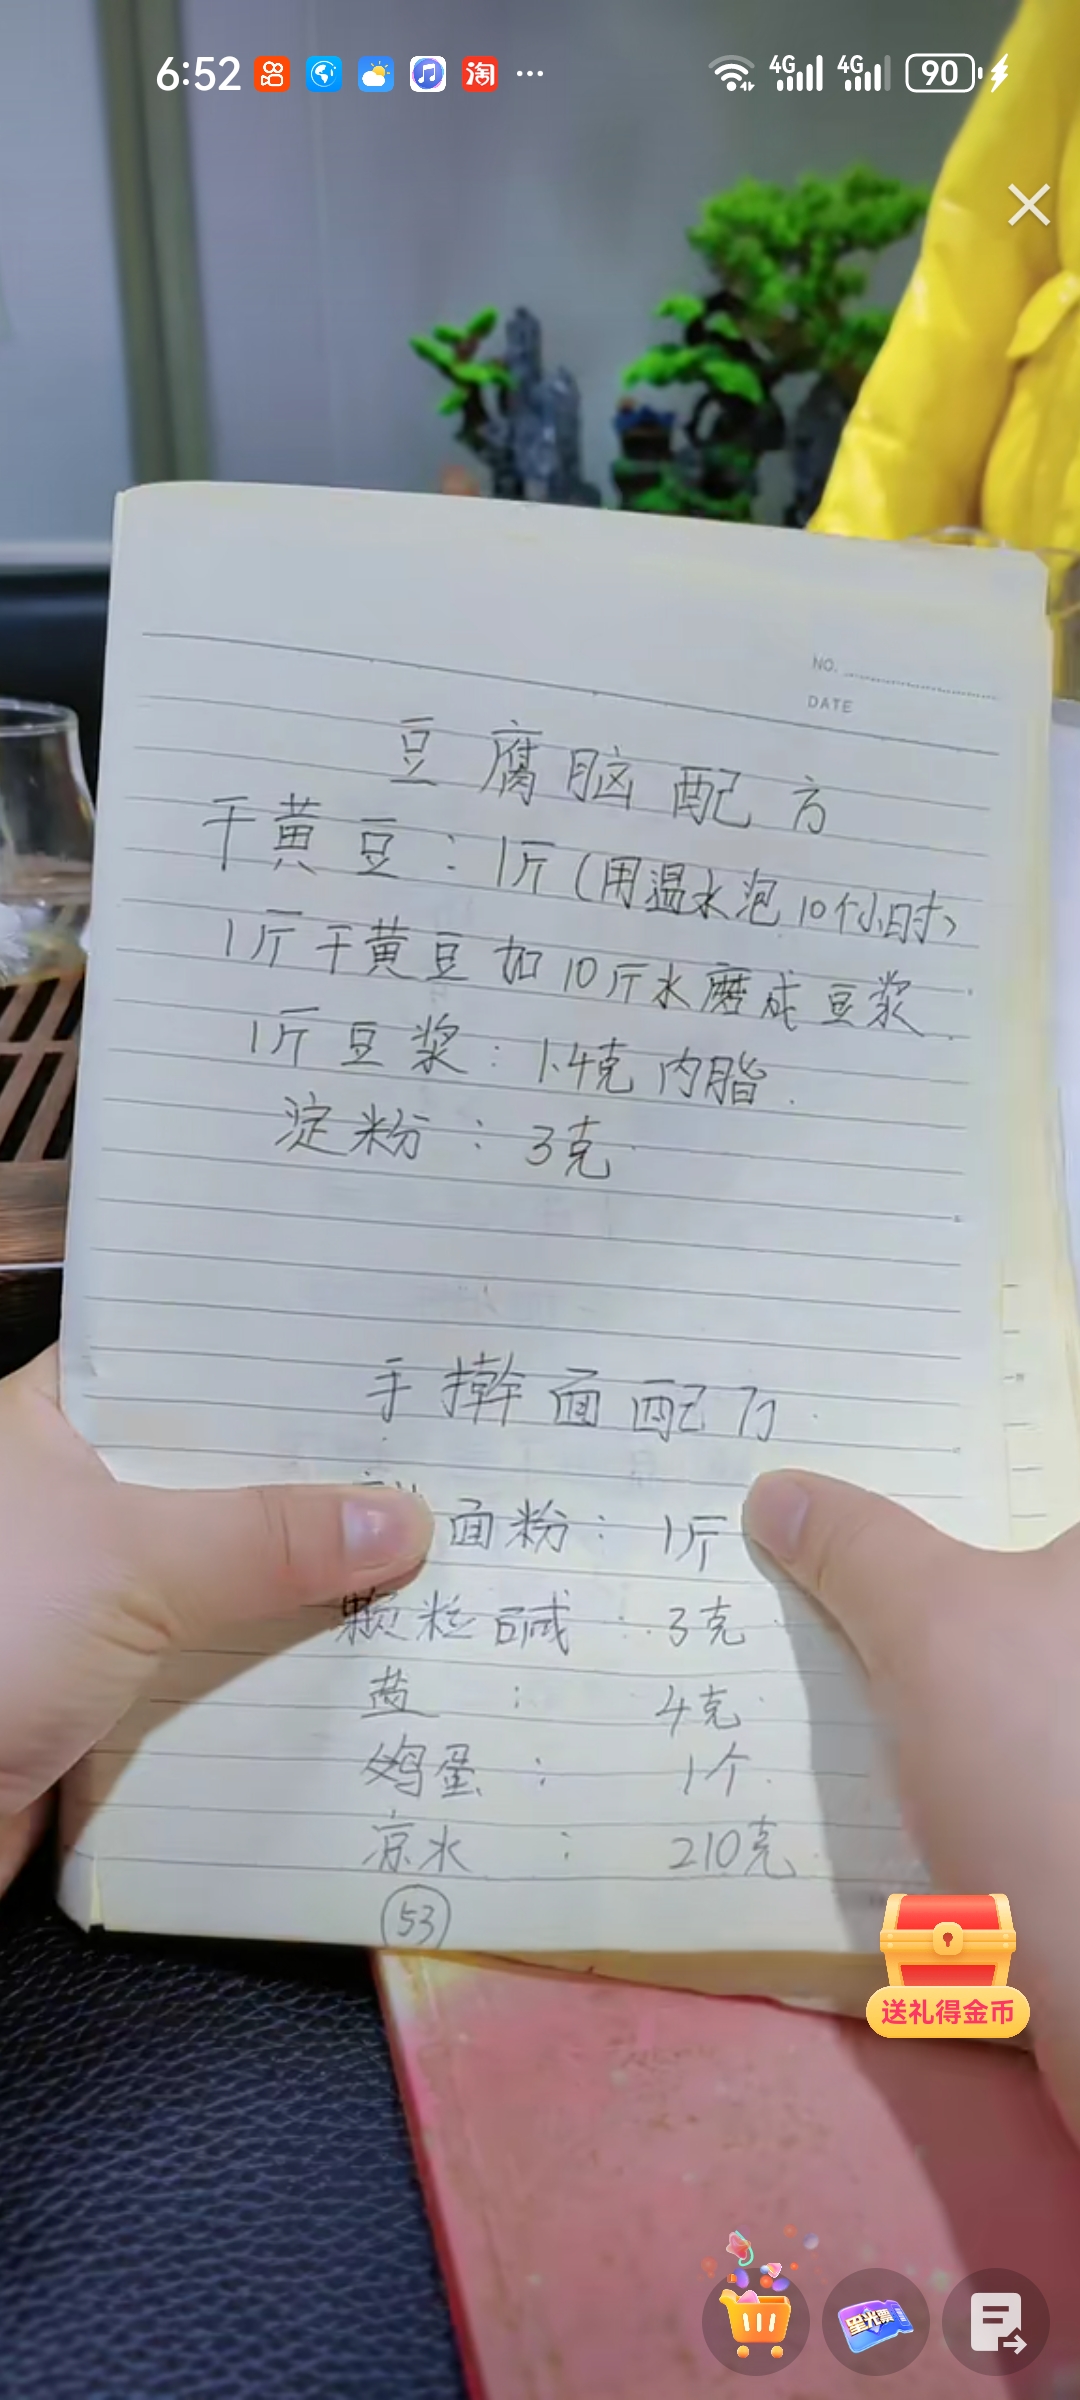 6:52
淘
4G
4G
90
NO.
DATE
豆腐脑配方
干黄豆：1斤（用温水泡10个小时）
1斤干黄豆加10斤水磨成豆浆
1斤豆浆：1.4克内脂.
淀粉：3克
手擀面配方
面粉：1斤
颗粒碱：3克
盐：4克
鸡蛋：1个
凉水：210克
53
送礼得金币
星光票